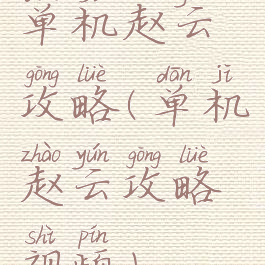 单机赵云
gōng lüè dān jī
攻略(单机
zhào yún gōng lüè
赵云攻略
shì pín
视频)